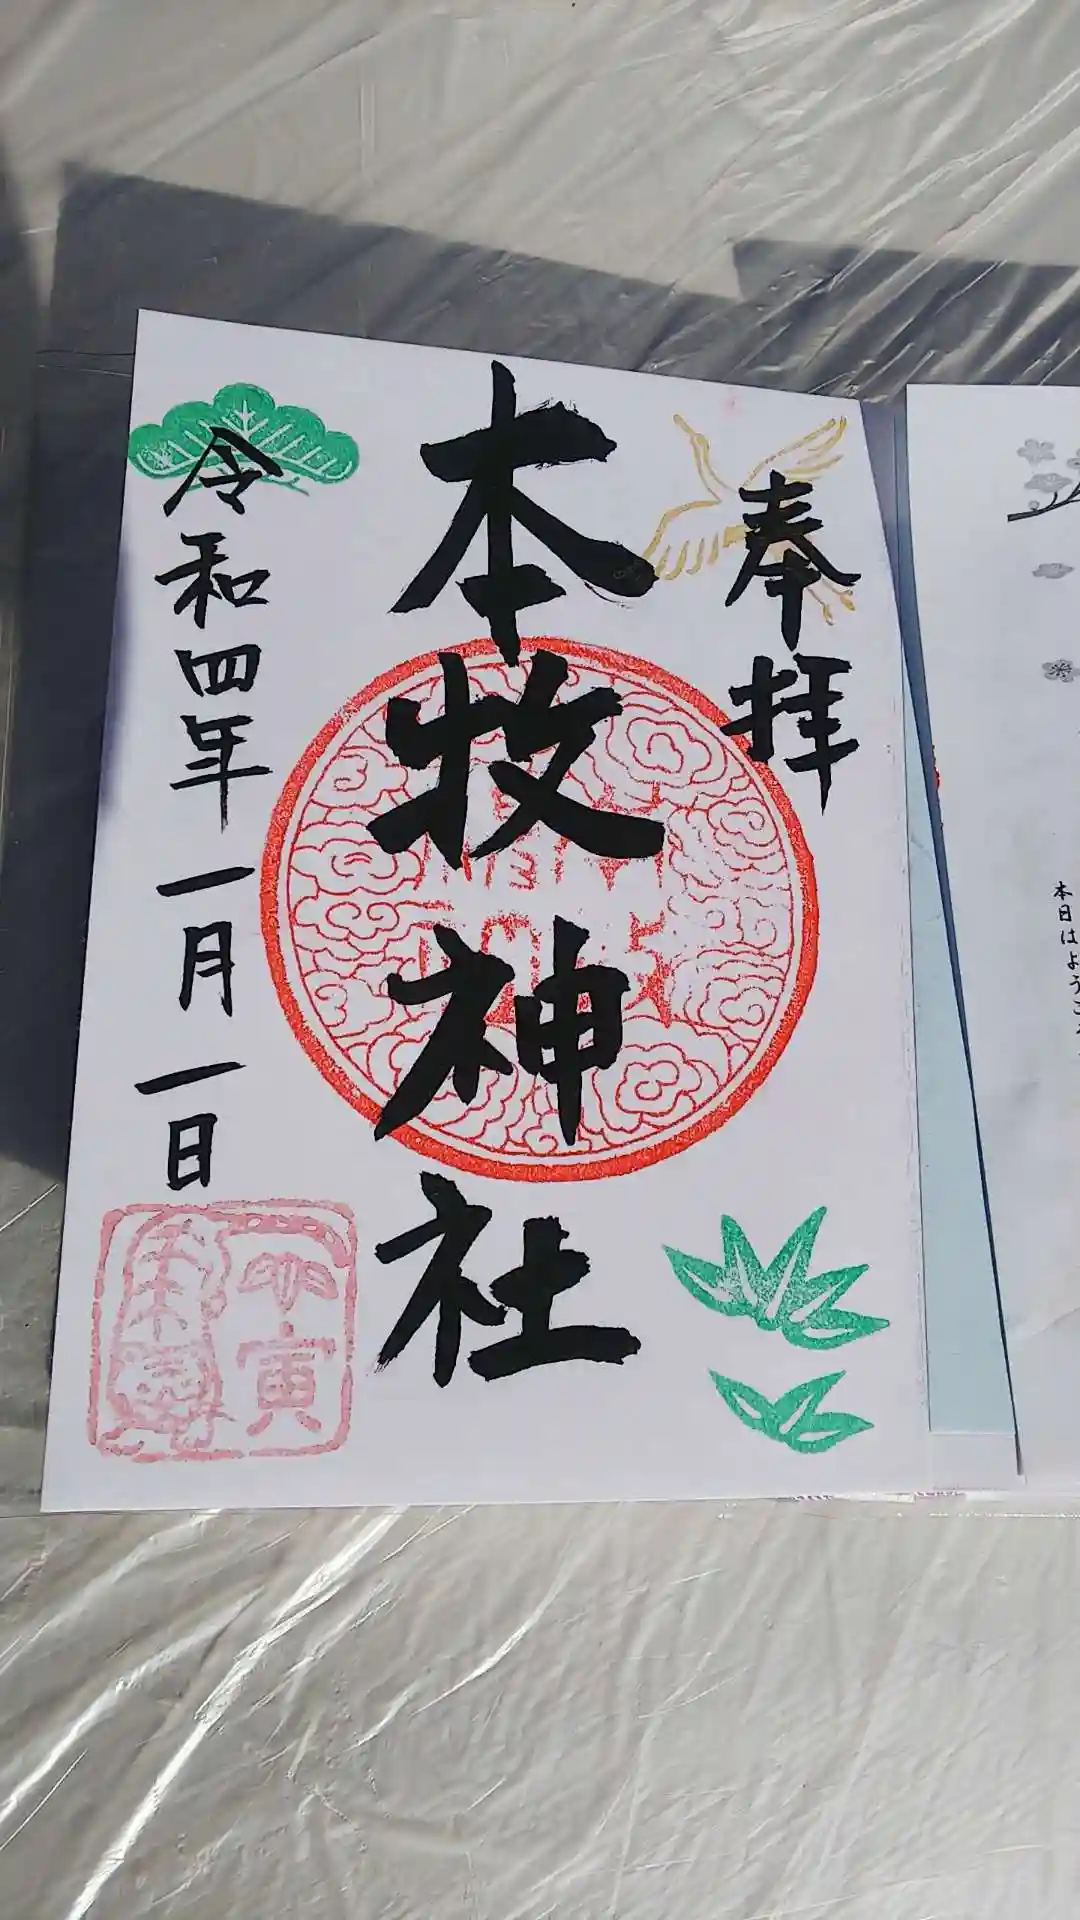 奉拝
本牧神社
令和四年一月一日
寅
本日はようこ